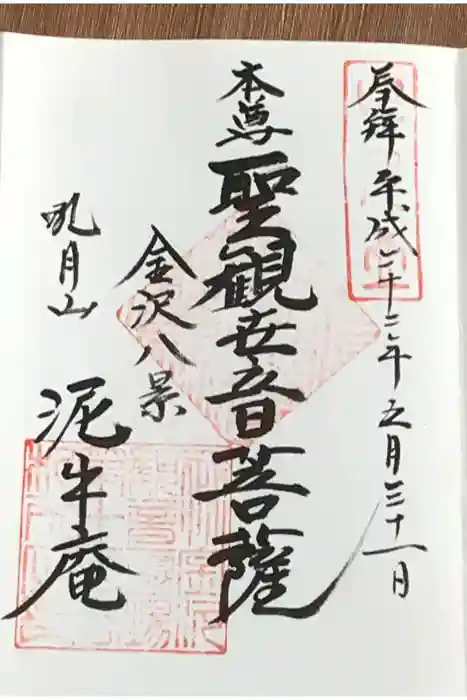 奉拜 平成二十二年五月三十一日
本尊 聖観世音菩薩
金沢八景
吼月山
泥牛庵